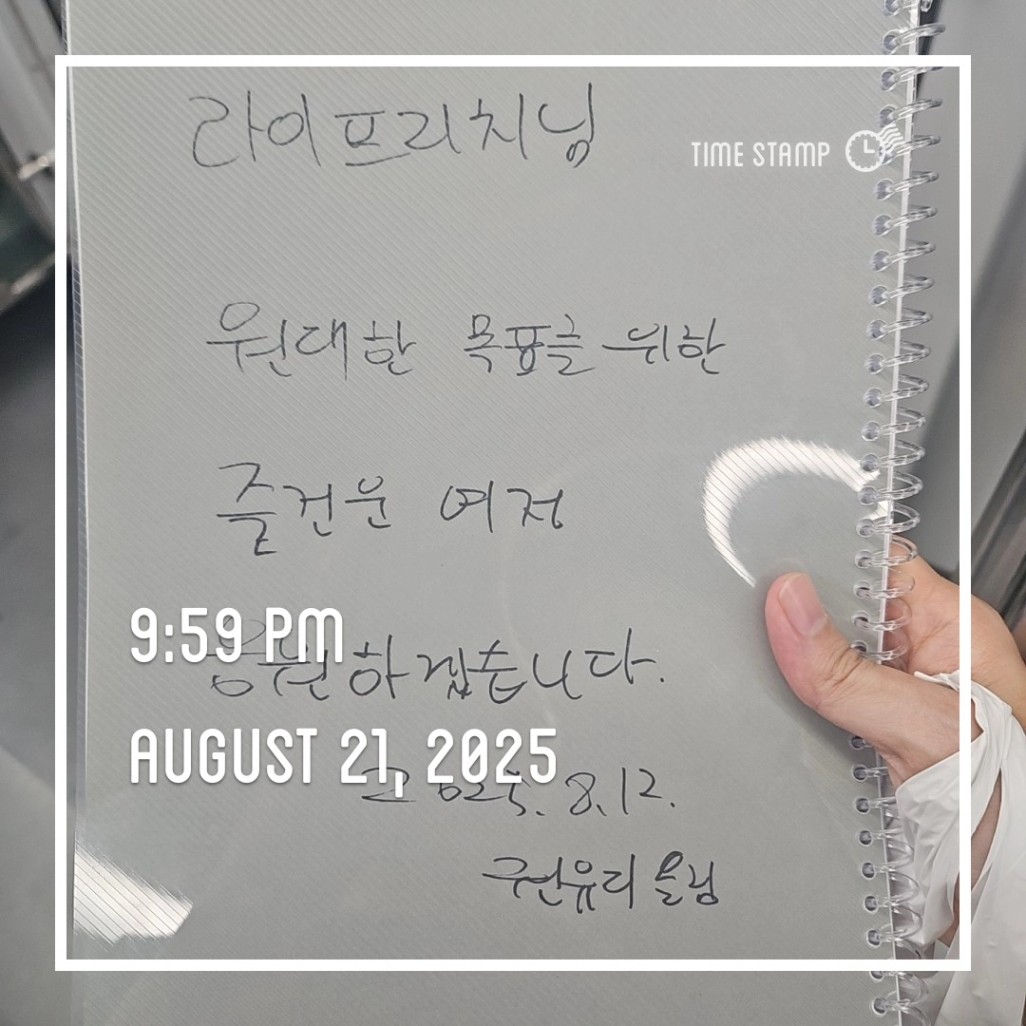 라이프리치님
TIME STAMP
원대한 목표를 위한
즐거운 여정
9:59 PM
응원하겠습니다.
AUGUST 21, 2025
2025. 8. 12.
권유리 올림